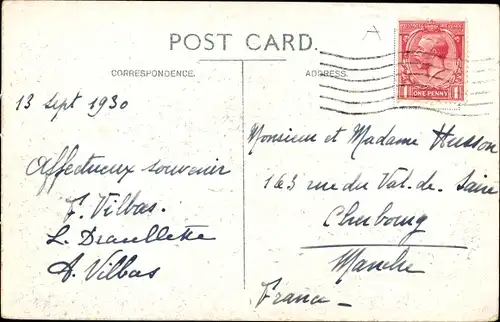 A
POST CARD.
CORRESPONDENCE.
ADDRESS.
ONE PENNY
13 Sept 1930
Affectueux souvenir
F. Vilbas.
L.
A. Vilbas
Monsieur et Madame Husson
163 rue du Val. de. Saire
Cherbourg
Manche
France